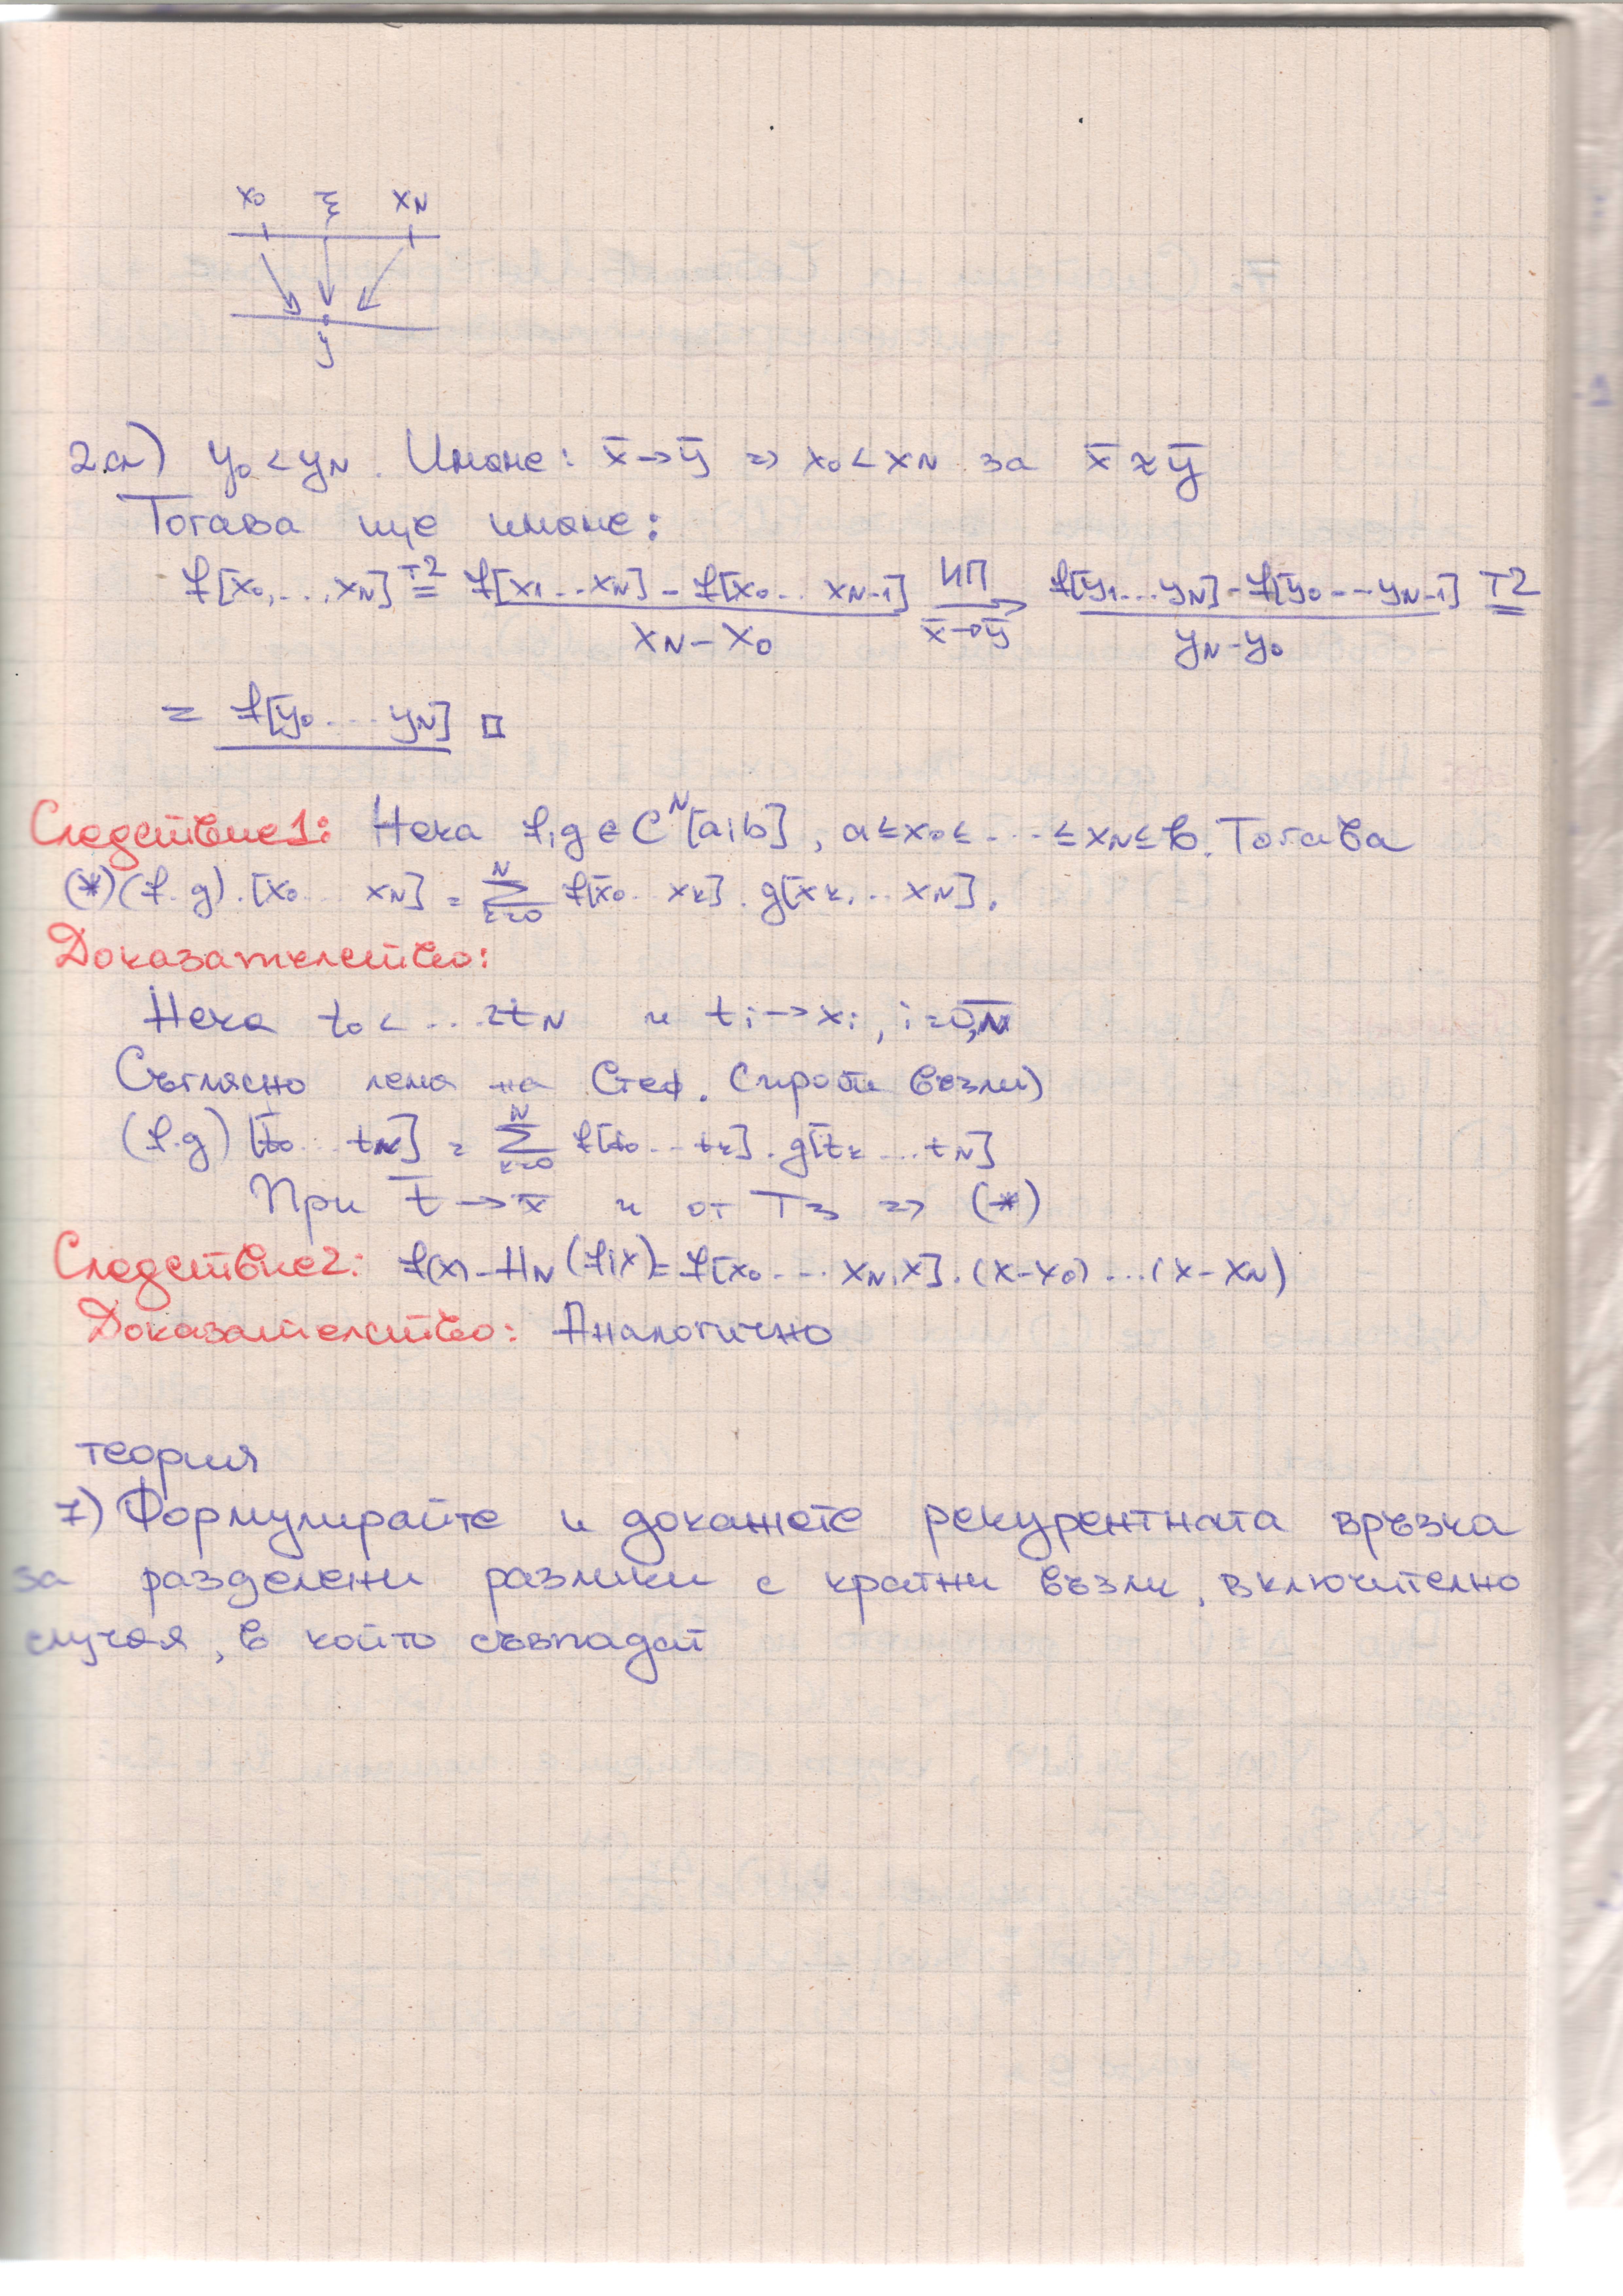 x₀ ξ x_N
y
2.a) y₀ < y_N. Имаме: x̄→ȳ => x₀ < x_N за x̄ ≈ ȳ
Тогава ще имаме:
f[x₀,...x_N] =(T2) (f[x₁...x_N] - f[x₀...x_{N-1}]) / (x_N - x₀) →(ИП, x̄→ȳ) (f[y₁...y_N] - f[y₀...y_{N-1}]) / (y_N - y₀) =(T2)
= f[y₀...y_N] □
Следствие1: Нека f,g ∈ C^N[a;b], a≤x₀≤...≤x_N≤b. Тогава
(*) (f.g).[x₀...x_N] = Σ_{k=0}^{N} f[x₀...x_k].g[x_k,...x_N].
Доказателство:
Нека t₀<...<t_N и t_i→x_i, i=0,N
Съгласно лема на Стеф. (прости възли)
(f.g)[t₀...t_N] = Σ_{k=0}^{N} f[t₀...t_k].g[t_k...t_N]
При t̄→x̄ и от T3 => (*)
Следствие2: f(x)-H_N(f;x)=f[x₀...x_N,x].(x-x₀)...(x-x_N)
Доказателство: Аналогично
теория
7) Формулирайте и докажете рекурентната връзка
за разделени разлики с кратни възли, включително
случая, в който съвпадат